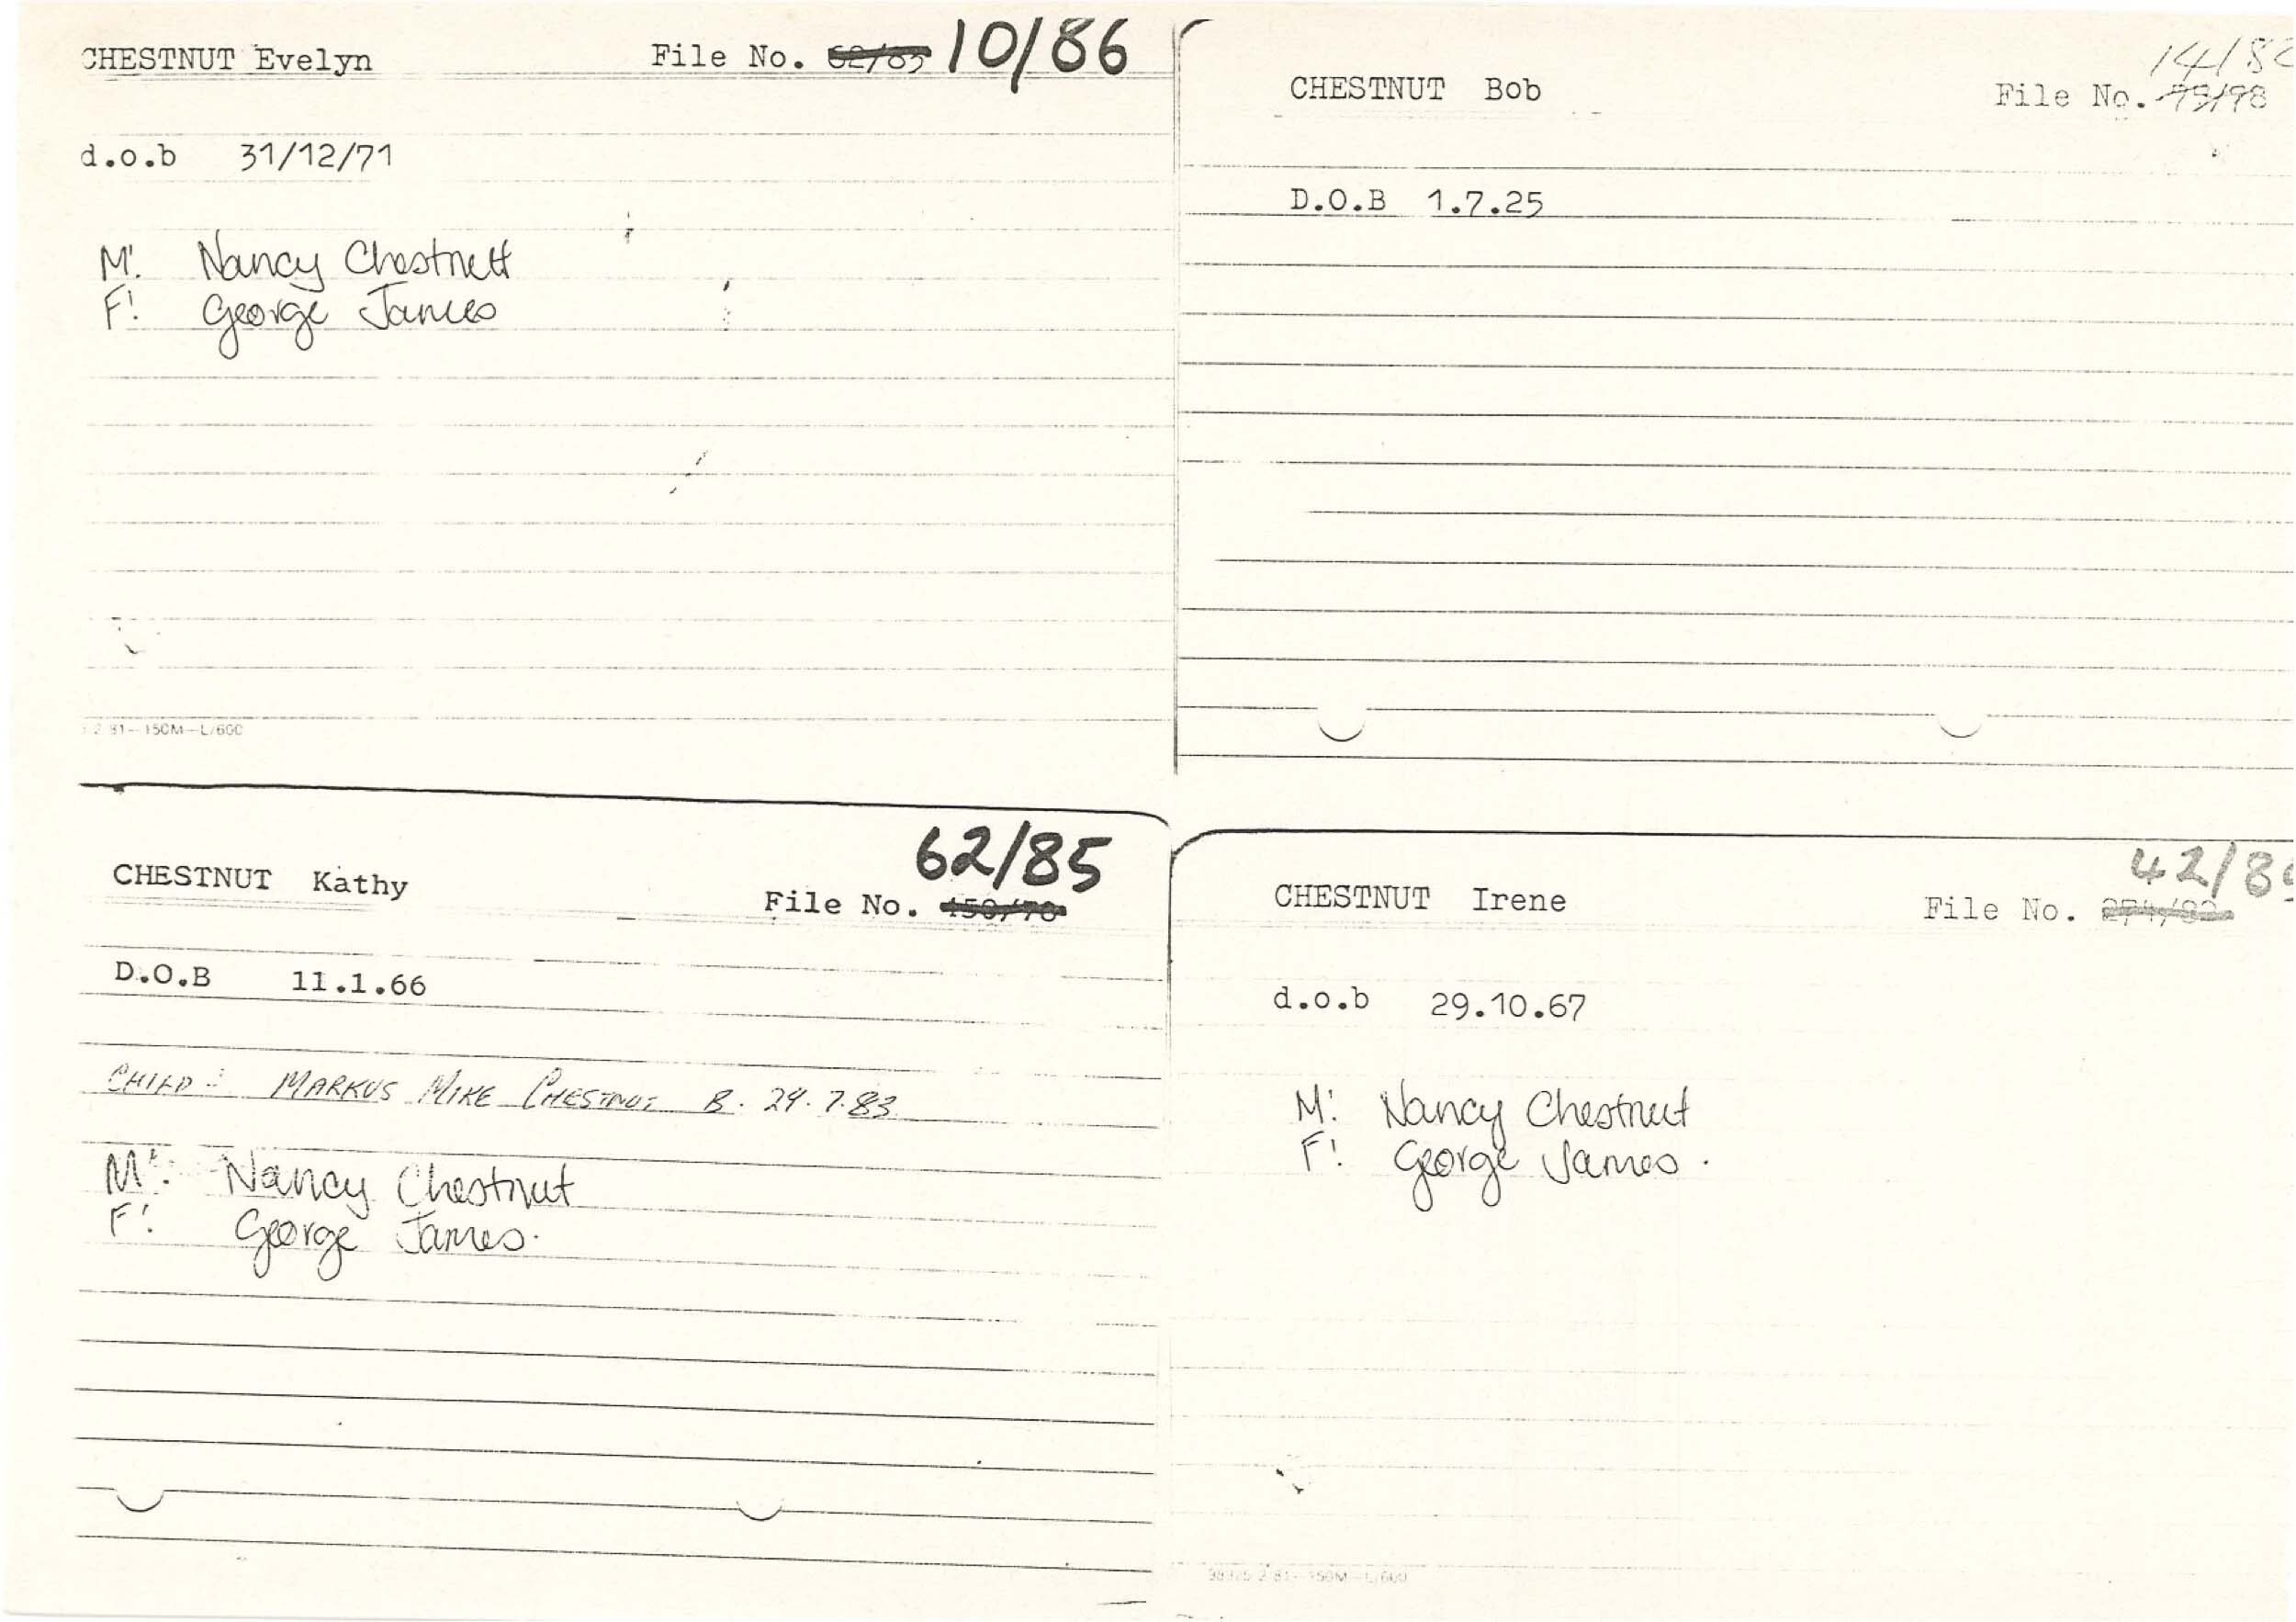 CHESTNUT Evelyn File No. 10/86
d.o.b 31/12/71
M: Nancy Chestnutt
F: George James
2 81—150M—L/600
14/8
CHESTNUT Bob File No. 79/78
D.O.B 1.7.25
62/85
CHESTNUT Kathy File No. 150/78
D.O.B 11.1.66
CHILD: MARKUS MIKE CHESTNUT B. 29.7.83
M: Nancy Chestnut
F: George James.
42/8
CHESTNUT Irene File No.
d.o.b 29.10.67
M: Nancy Chestnut
F: George James.
2 81—150M—L/600